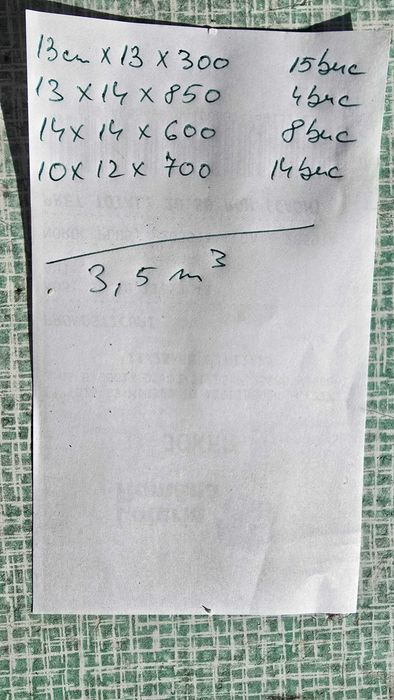 13cm x 13 x 300 15buc
13 x 14 x 850 4buc
14x 14 x 600 8buc
10x 12 x 700 14buc
3,5 m³